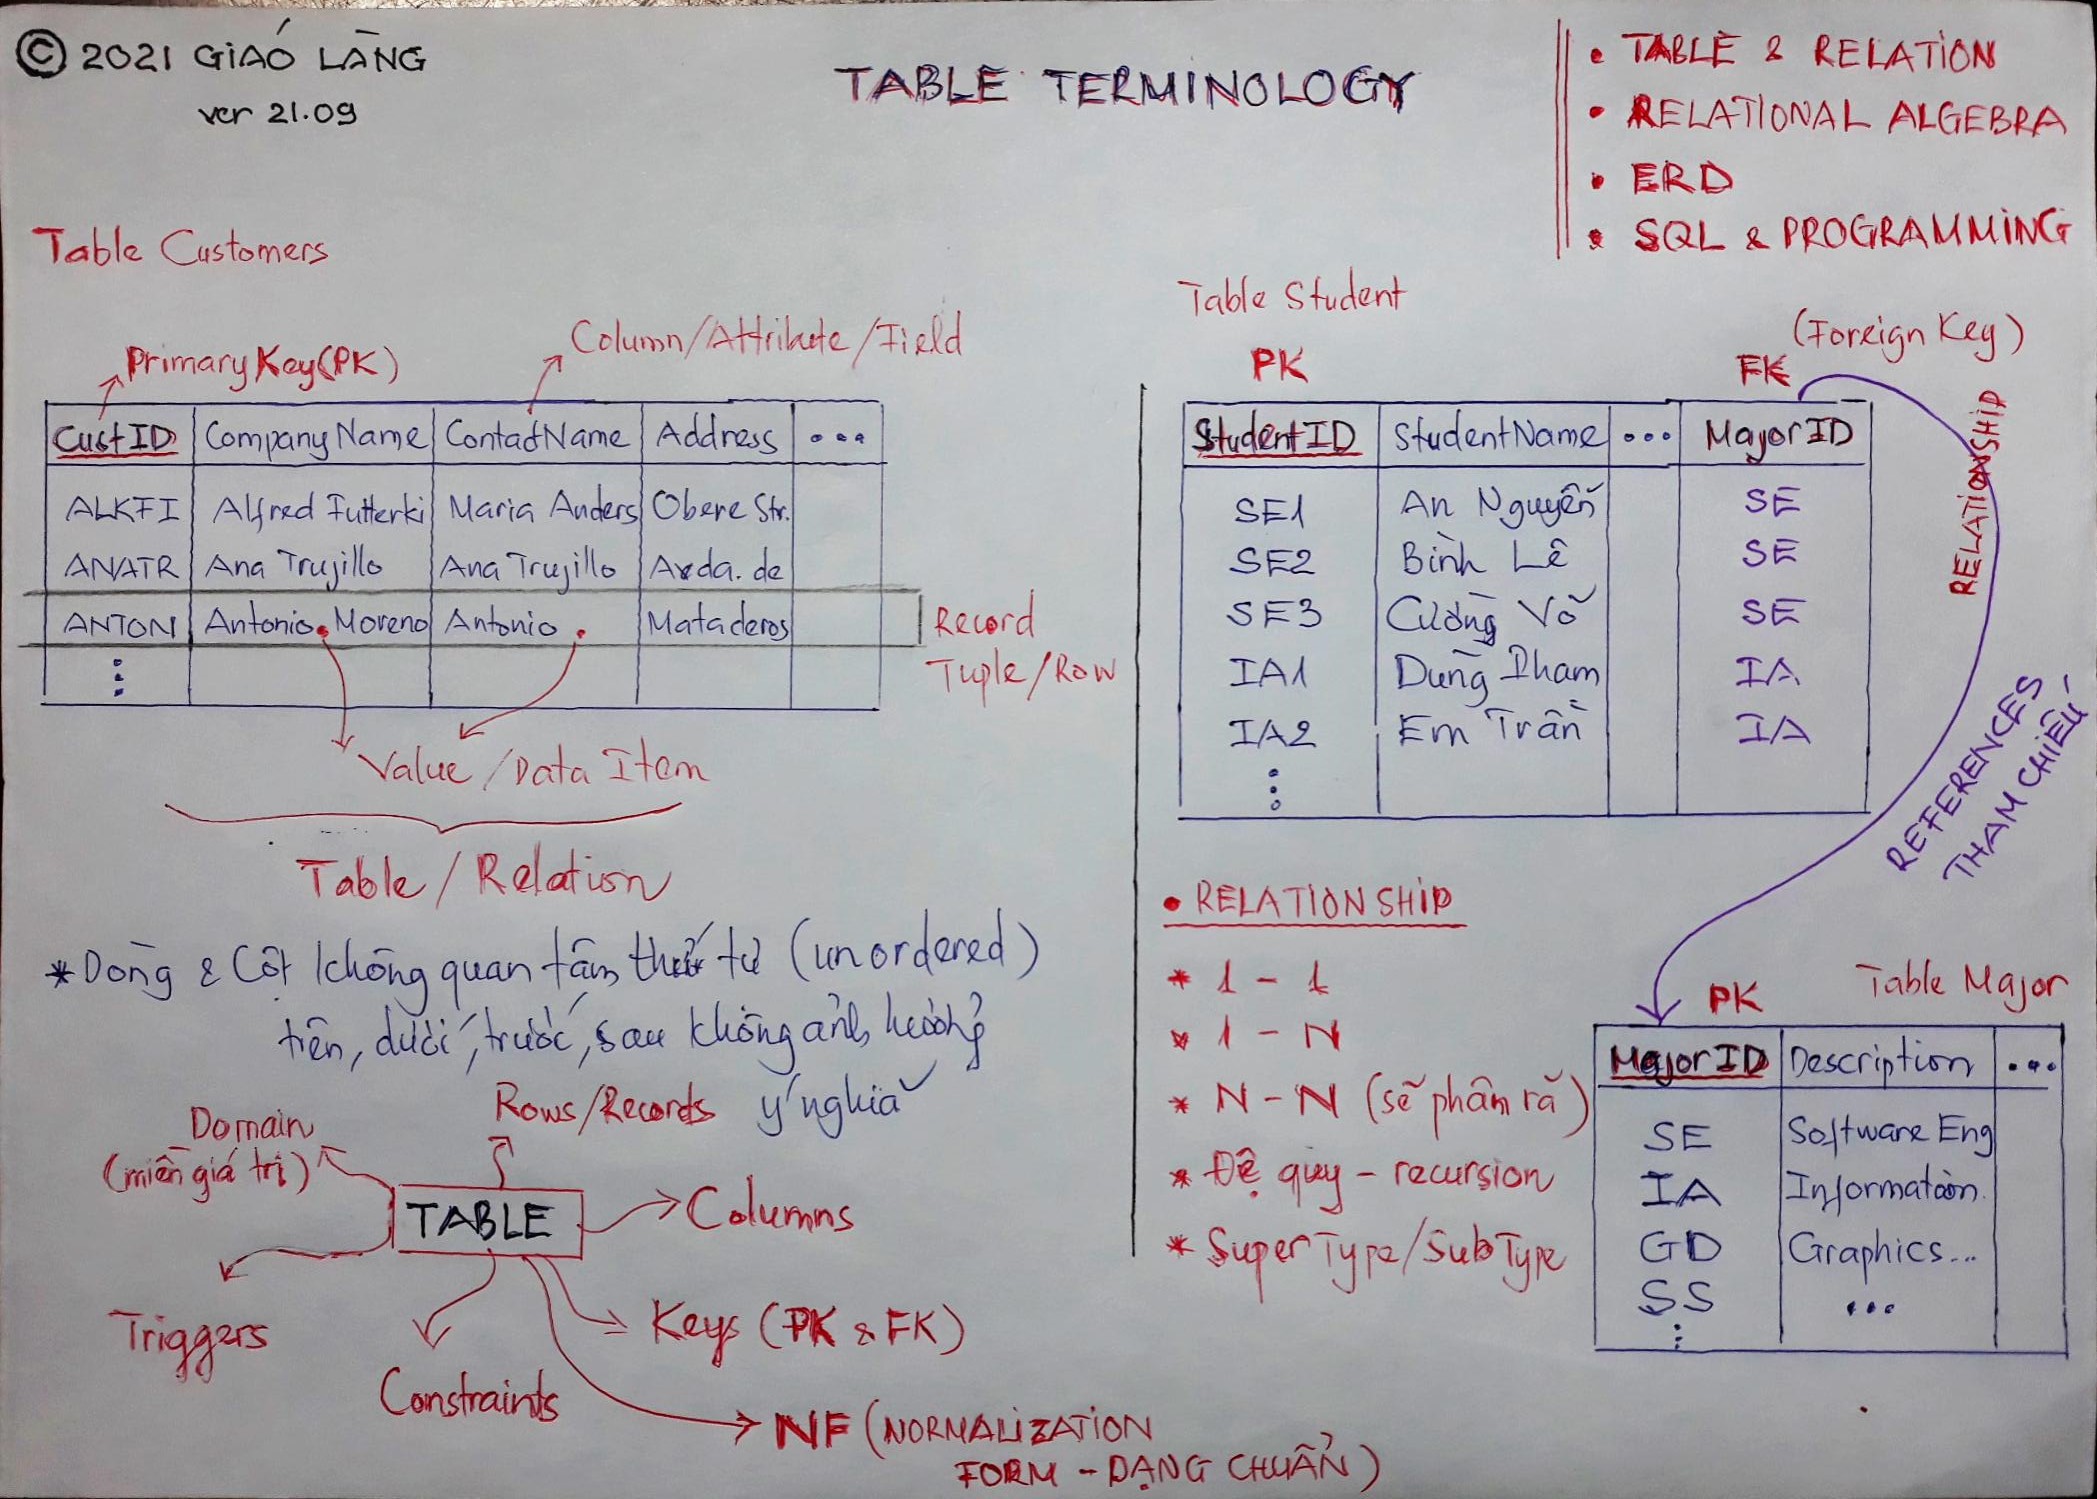 © 2021 GIÁO LÀNG
ver 21.09
TABLE TERMINOLOGY
• TABLE & RELATION
• RELATIONAL ALGEBRA
• ERD
• SQL & PROGRAMMING
Table Customers
Primary Key (PK)
Column/Attribute/Field
CustID CompanyName ContactName Address •••
ALKFI Alfred Futterki Maria Anders Obere Str.
ANATR Ana Trujillo Ana Trujillo Avda. de
ANTON Antonio Moreno Antonio . Mataderos
Record
Tuple/Row
Value/Data Item
Table / Relation
* Dòng & Cột không quan tâm thứ tự (unordered)
trên, dưới, trước, sau không ảnh hưởng
ý nghĩa
Rows/Records
Domain
(miền giá trị)
TABLE
Columns
Triggers
Constraints
Keys (PK & FK)
NF (NORMALIZATION
FORM - DẠNG CHUẨN)
Table Student
PK
FK
(Foreign Key)
StudentID StudentName ••• MajorID
SE1 An Nguyễn SE
SE2 Bình Lê SE
SE3 Cường Võ SE
IA1 Dũng Pham IA
IA2 Em Trần IA
RELATIONSHIP
REFERENCES
THAM CHIẾU
• RELATIONSHIP
* 1 - 1
* 1 - N
* N - N (sẽ phân rã)
* Đệ quy - recursion
* SuperType/SubType
PK
Table Major
MajorID Description •••
SE Software Eng
IA Information.
GD Graphics...
SS •••